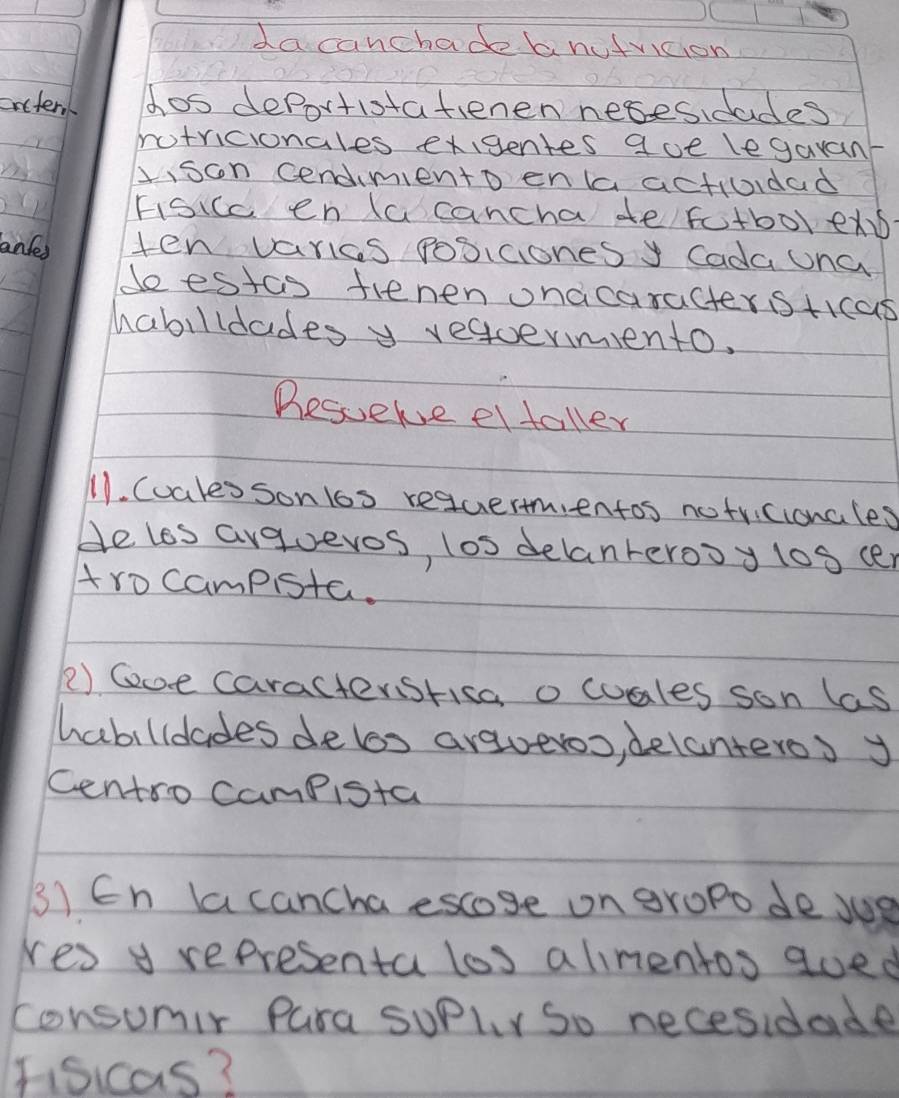 La cancha de la nutricion
Los deportista tienen nesesidades
nutricionales exigentes que le garan-
visan cendimiento en la actividad
Fisica en la cancha de futbol exis-
ten varias posiciones y cada una
de estas tienen una caracteristicas
habilidades y requerimiento.
Resuelve el taller
1). Cuales son los requerimientos nutricionales
de los arqueros, los delanteros y los cen
tro campista.
2). Que caracteristica o cuales son las
habilidades de los arqueros, delanteros y
centro campista
3). En la cancha escoge un grupo de juga
res y representa los alimentos que d
consumir para suplir su necesidade
Fisicas?